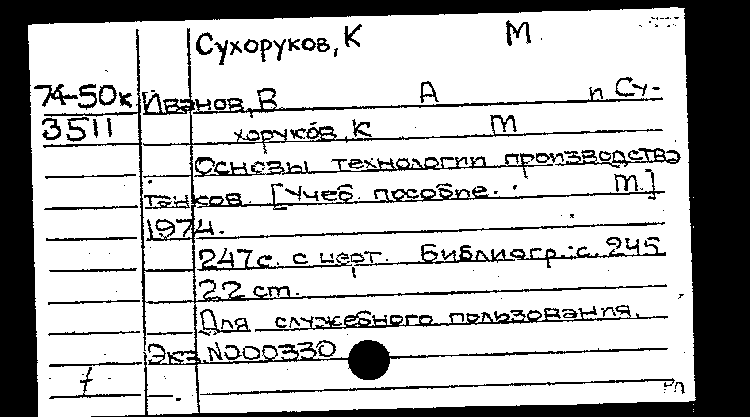 Сухоруков, К М
74-50к Иванов, В А и Су-
3511 хоруков, К М
Основы технологии производства
танков. [Учеб. пособие. . М.]
1974.
247с. с черт. Библиогр.: с. 245
22 см.
Для служебного пользования.
Экз. N000330
Рп